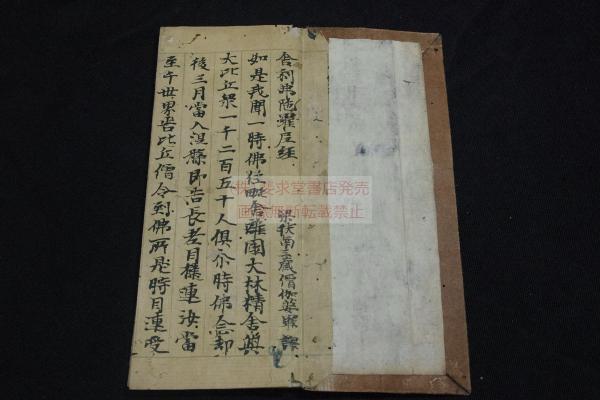 舍利弗陀羅尼經 梁扶南三藏僧伽婆羅譯
如是我聞一時佛住毗舍離國大林精舍與
大比丘眾一千二百五十人俱尒時佛念却
後三月當入涅槃即告長老目揵連汝當
至千世界告比丘僧令到佛所是時目連受
求堂書店発売
画像無断転載禁止